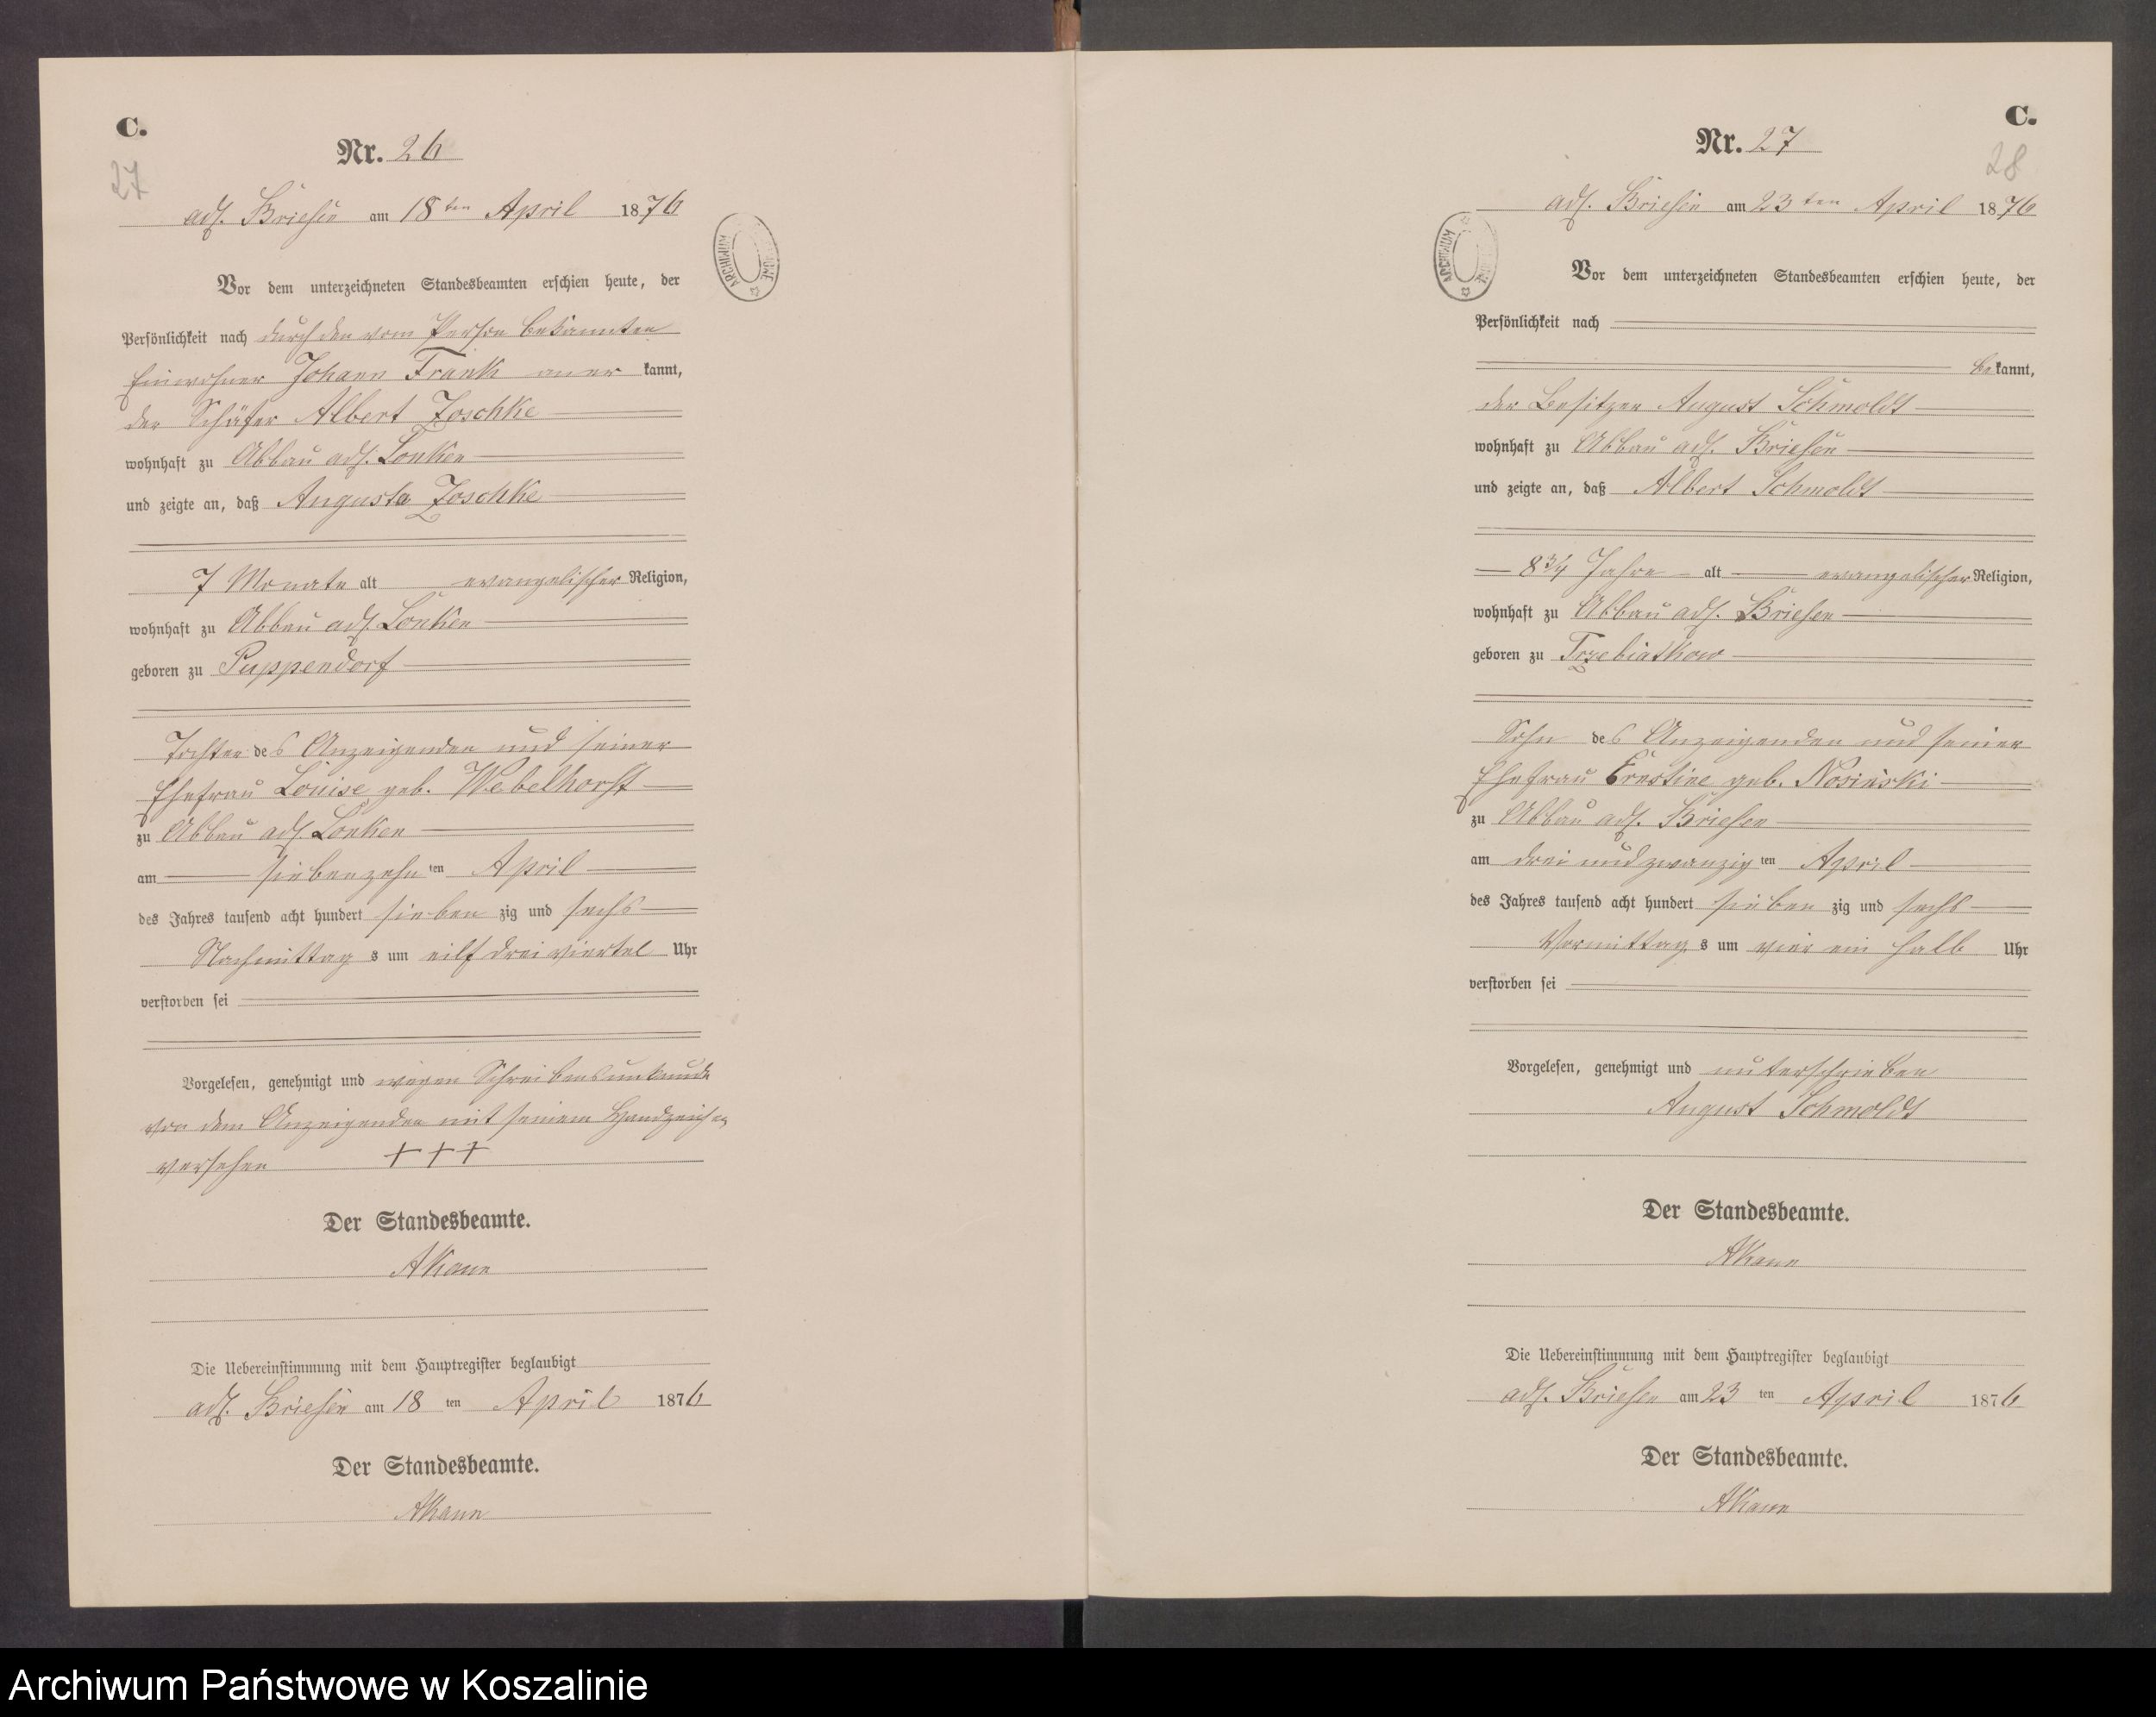 C.
Nr. 26
27
adl. Briesen am 18ten April 1876
ARCHIWUM
Vor dem unterzeichneten Standesbeamten erschien heute, der
Persönlichkeit nach durch den von Person bekannten
Einwohner Johann Frank aner kannt,
der Schäfer Albert Zoschke
wohnhaft zu Abbau adl. Lonken
und zeigte an, daß Augusta Zoschke
7 Monate alt evangelischer Religion,
wohnhaft zu Abbau adl. Lonken
geboren zu Puppendorf
Tochter des Anzeigenden und seiner
Ehefrau Louise geb. Webelhorst
zu Abbau adl. Lonken
am siebenzehnten April
des Jahres tausend acht hundert siebenzig und sechs
Nachmittags um eilf drei viertel Uhr
verstorben sei
Vorgelesen, genehmigt und wegen Schreibensunkunde
von dem Anzeigenden mit seinem Handzeichen
versehen +++
Der Standesbeamte.
AKann
Die Uebereinstimmung mit dem Hauptregister beglaubigt
adl. Briesen am 18ten April 1876
Der Standesbeamte.
AKann
C.
Nr. 27
28
adl. Briesen am 23ten April 1876
ARCHIWUM
Vor dem unterzeichneten Standesbeamten erschien heute, der
Persönlichkeit nach
bekannt,
der Besitzer August Schmoldt
wohnhaft zu Abbau adl. Briesen
und zeigte an, daß Albert Schmoldt
8¾ Jahre alt evangelischer Religion,
wohnhaft zu Abbau adl. Briesen
geboren zu Trzebiatkow
Sohn des Anzeigenden und seiner
Ehefrau Ernstine geb. Nosinski
zu Abbau adl. Briesen
am drei und zwanzigten April
des Jahres tausend acht hundert siebenzig und sechs
Vormittags um vier ein halb Uhr
verstorben sei
Vorgelesen, genehmigt und unterschrieben
August Schmoldt
Der Standesbeamte.
AKann
Die Uebereinstimmung mit dem Hauptregister beglaubigt
adl. Briesen am 23ten April 1876
Der Standesbeamte.
AKann
Archiwum Państwowe w Koszalinie